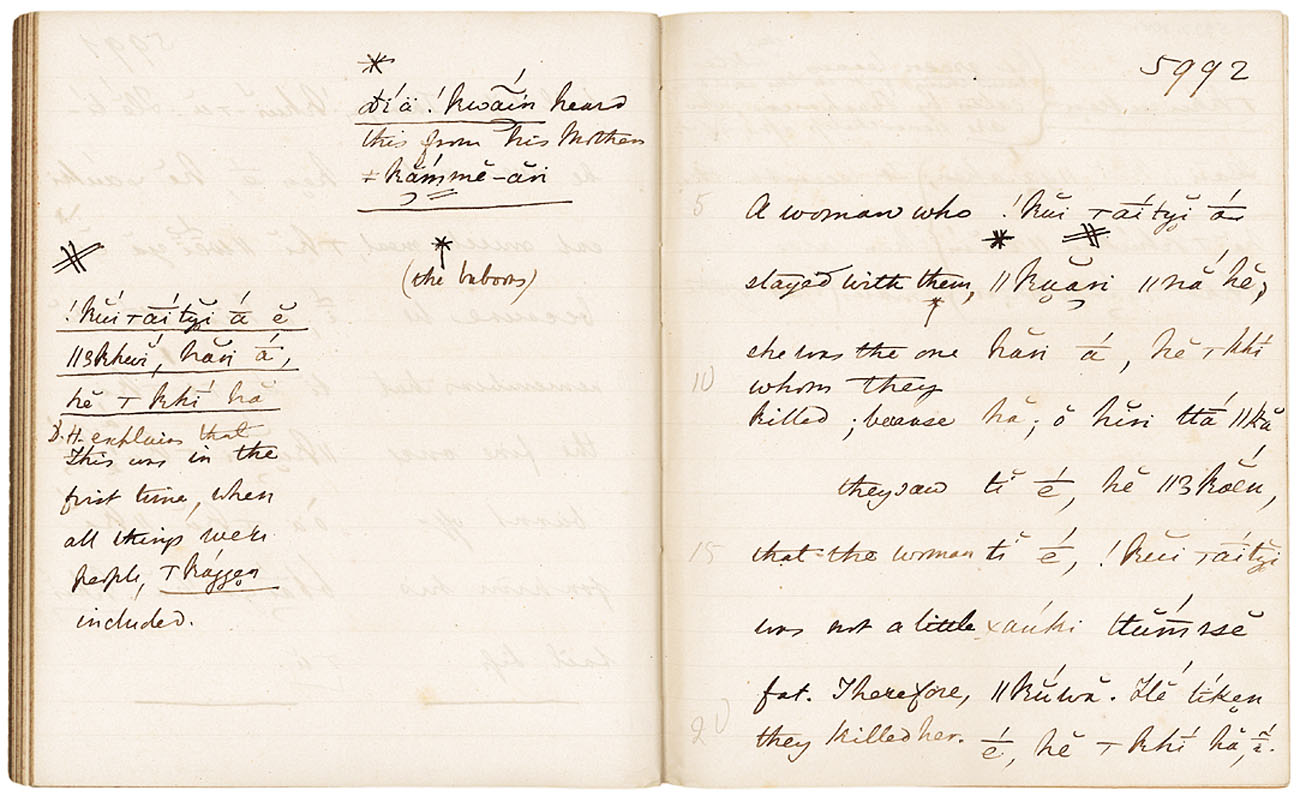 *
Día̋ !kwãín heard
this from his Mother
ǂkắmmĕ-ăn
*
(the baboons)
!kŭí ⊤āítyĭ á ĕ
ǁʒkheĭ, hăn á,
hĕ ⊤ khí hă
D.H. explains that
This was in the
first time, when
all things were
people, ⊤kággen
included.
5992
5 A woman who !kŭi ⊤āítyĭ á
stayed with them, ǁkuări ǁnă hĕ;
she was the one hăn á, hĕ ⊤khí
10 whom they
killed; because hă; ŏ hĕn ttá ǁkă
they saw tĭ é, hĕ ǁʒkŏĕn,
15 that the woman tĭ é, !kŭi ⊤āítyĭ
was not a little xăúki ttŭḿssĕ
fat. Therefore, ǁkúwă. Hĕ tíken
20 they killed her. é, hĕ ⊤ khí hă, ĭ.